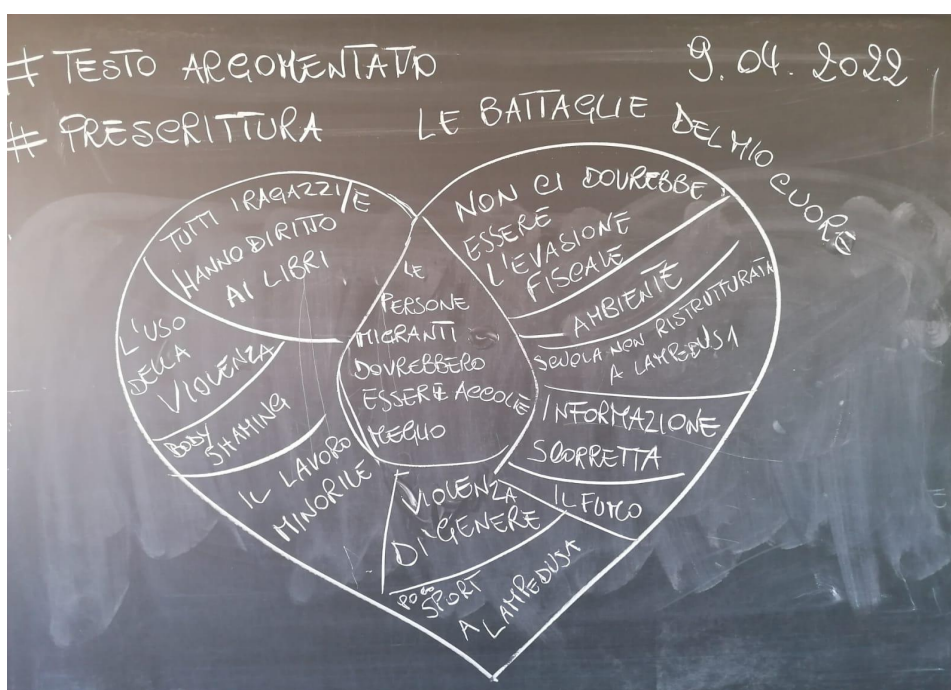 # TESTO ARGOMENTATO
9.04.2022
# PRESCRITTURA
LE BATTAGLIE DEL MIO CUORE
TUTTI I RAGAZZI/E
HANNO DIRITTO
AI LIBRI
L'USO
DELLA
VIOLENZA
BODY
SHAMING
IL LAVORO
MINORILE
LE
PERSONE
MIGRANTI
DOVREBBERO
ESSERE ACCOLTE
MEGLIO
NON CI DOVREBBE
ESSERE
L'EVASIONE
FISCALE
AMBIENTE
SCUOLA NON RISTRUTTURATA
A LAMPEDUSA
INFORMAZIONE
SCORRETTA
IL FUMO
VIOLENZA
DI GENERE
POCO
SPORT
A LAMPEDUSA